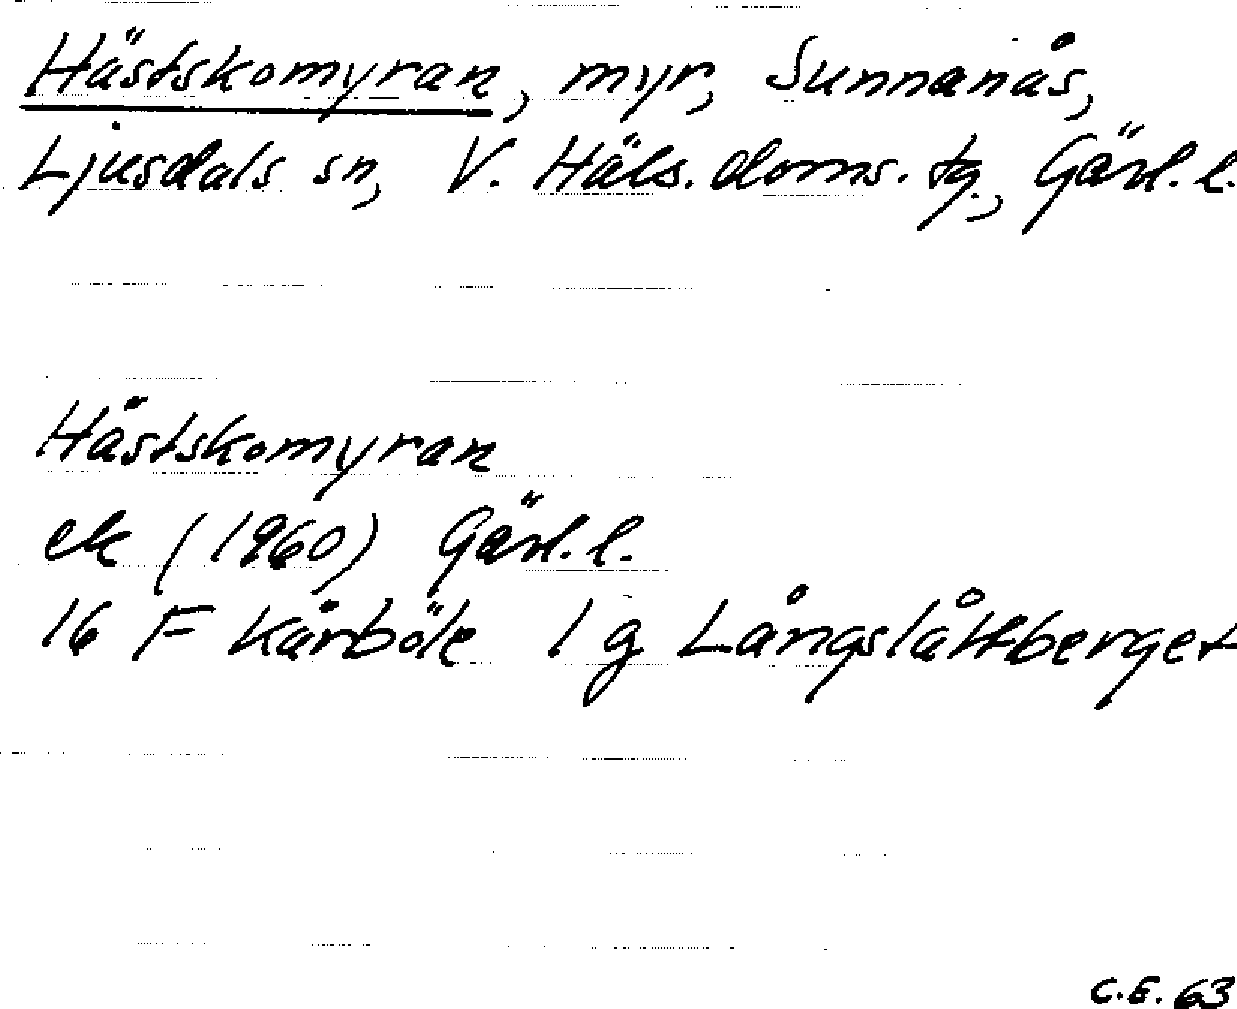 Hästskomyran, myr, Sunnanås,
Ljusdals sn, V. Häls. doms. tg., Gävl. l.
Hästskomyran
ek (1960) Gävl. l.
16 F Kårböle 1 g Långslåttberget
C.E. 63